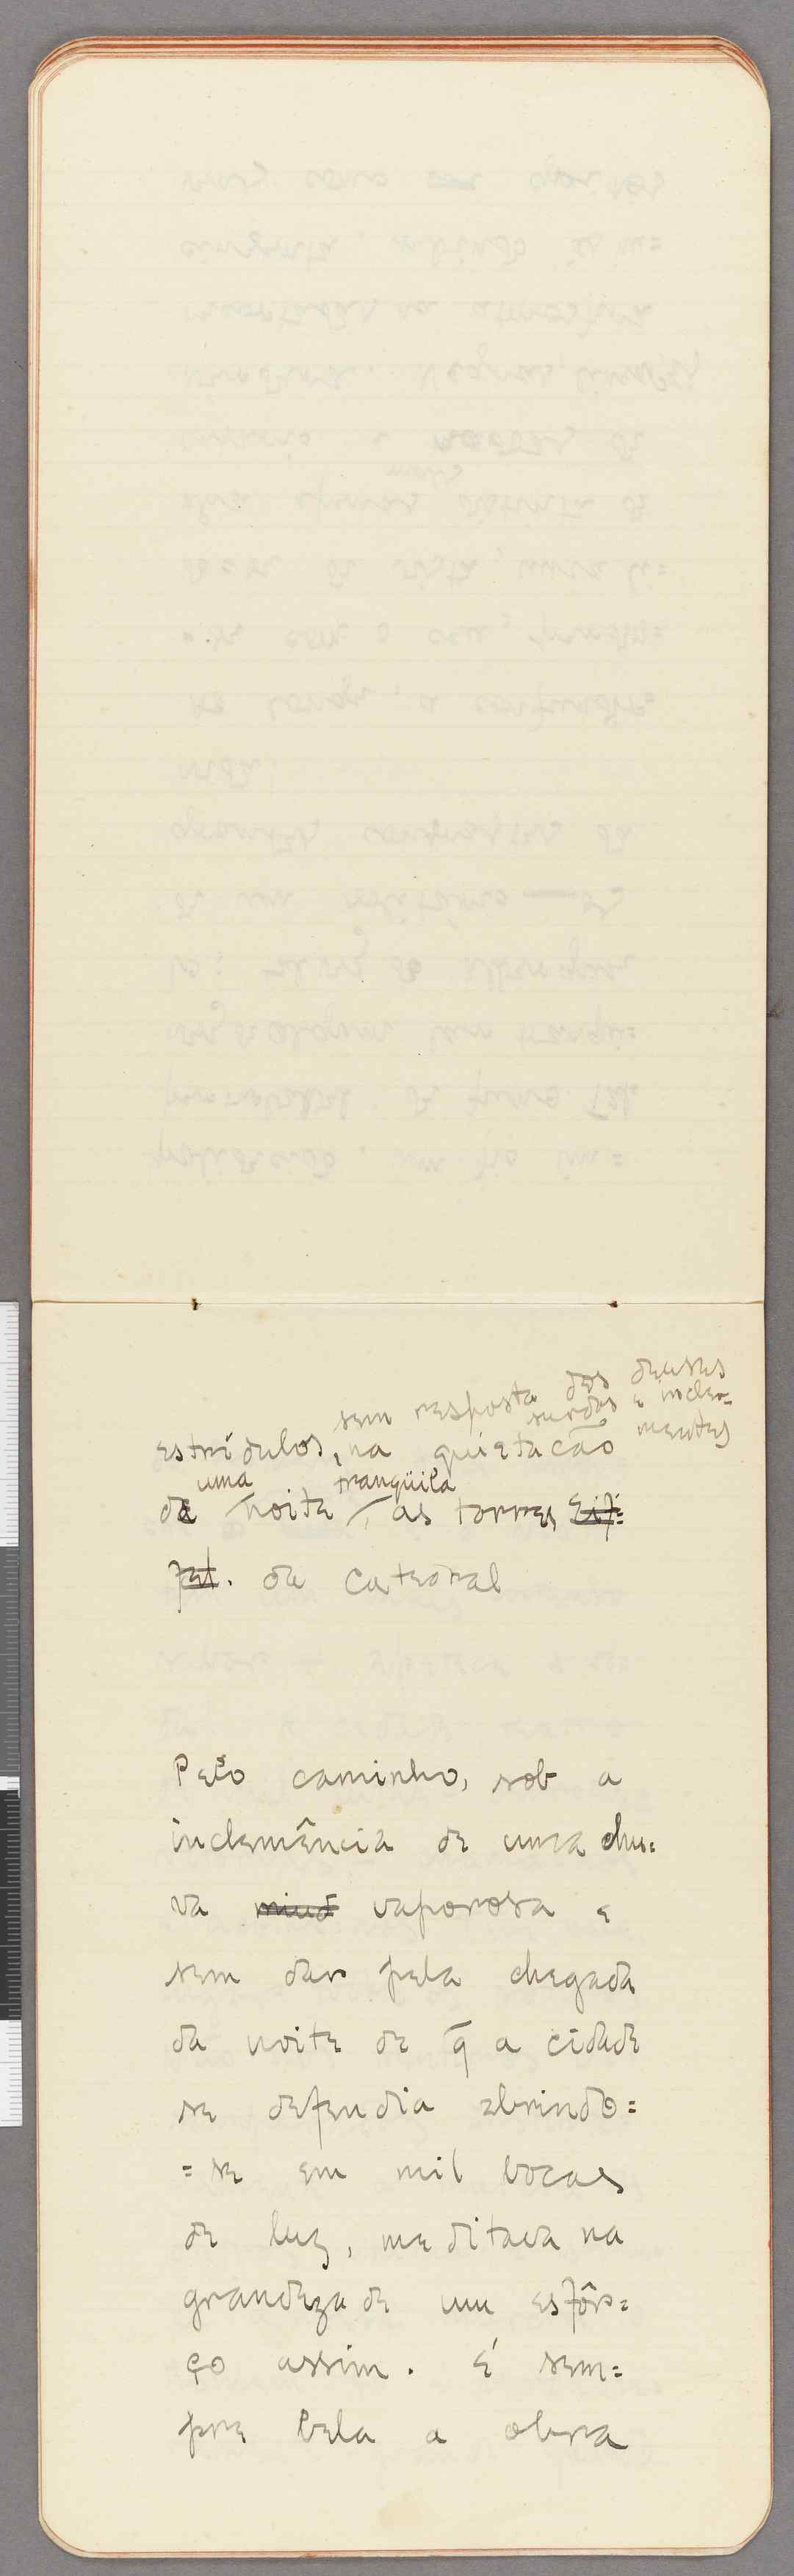 sem resposta dos deuses
surdos e incle=
mentes
estrídulos, na quietação
uma tranqüila
da noite, as torres Eif=
fel. da Catedral
Pelo caminho, sob a
inclemência de uma chu=
va miud vaporosa e
sem dar pela chegada
da noite de q̄ a cidade
se defendia abrindo=
=se em mil bocas
de luz, meditava na
grandeza de um esfôr=
ço assim. É sem=
pre bela a obra